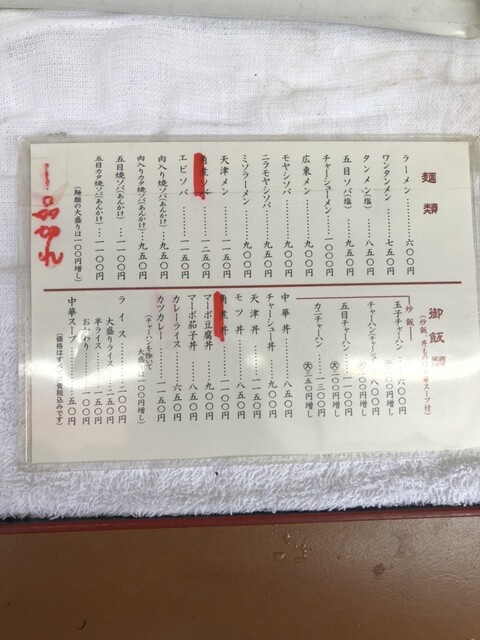 麺類
ラーメン 六〇〇円
ワンタンメン 七五〇円
タンメン(塩) 八五〇円
五目ソバ(塩) 九五〇円
チャーシューメン 一〇〇〇円
広東メン 九五〇円
モヤシソバ 九五〇円
ニラモヤシソバ 九五〇円
ミソラーメン 九〇〇円
天津メン 一一五〇円
角煮ソバ 一二五〇円
エビソバ 一一五〇円
肉入り焼ソバ(あんかけ) 九五〇円
肉入りカタ焼ソバ(あんかけ) 九五〇円
五目焼ソバ(あんかけ) 一一〇〇円
五目カタ焼ソバ(あんかけ) 一一〇〇円
(麺類の大盛りは一〇〇円増し)
御飯類
(炒飯、丼もの スープ付)
炒飯
玉子チャーハン 六〇〇円
チャーハン(チャーシュー) 八〇〇円
五目チャーハン 一一〇〇円
大 二〇〇円増し
カニチャーハン 一三〇〇円
大 二五〇円増し
中華丼 八五〇円
チャーシュー丼 九〇〇円
天津丼 一一〇〇円
モツ丼 八五〇円
角煮丼 一一〇〇円
マーボ豆腐丼 九〇〇円
マーボ茄子丼 八五〇円
カレーライス 六五〇円
カツカレー 一一五〇円
(チャーハンを除いて
大盛 一〇〇円増し)
ライス 二〇〇円
大盛りライス 二五〇円
半ライス 一五〇円
おかわり 一〇〇円
中華スープ 五〇円
(価格はすべて消費税込みです)